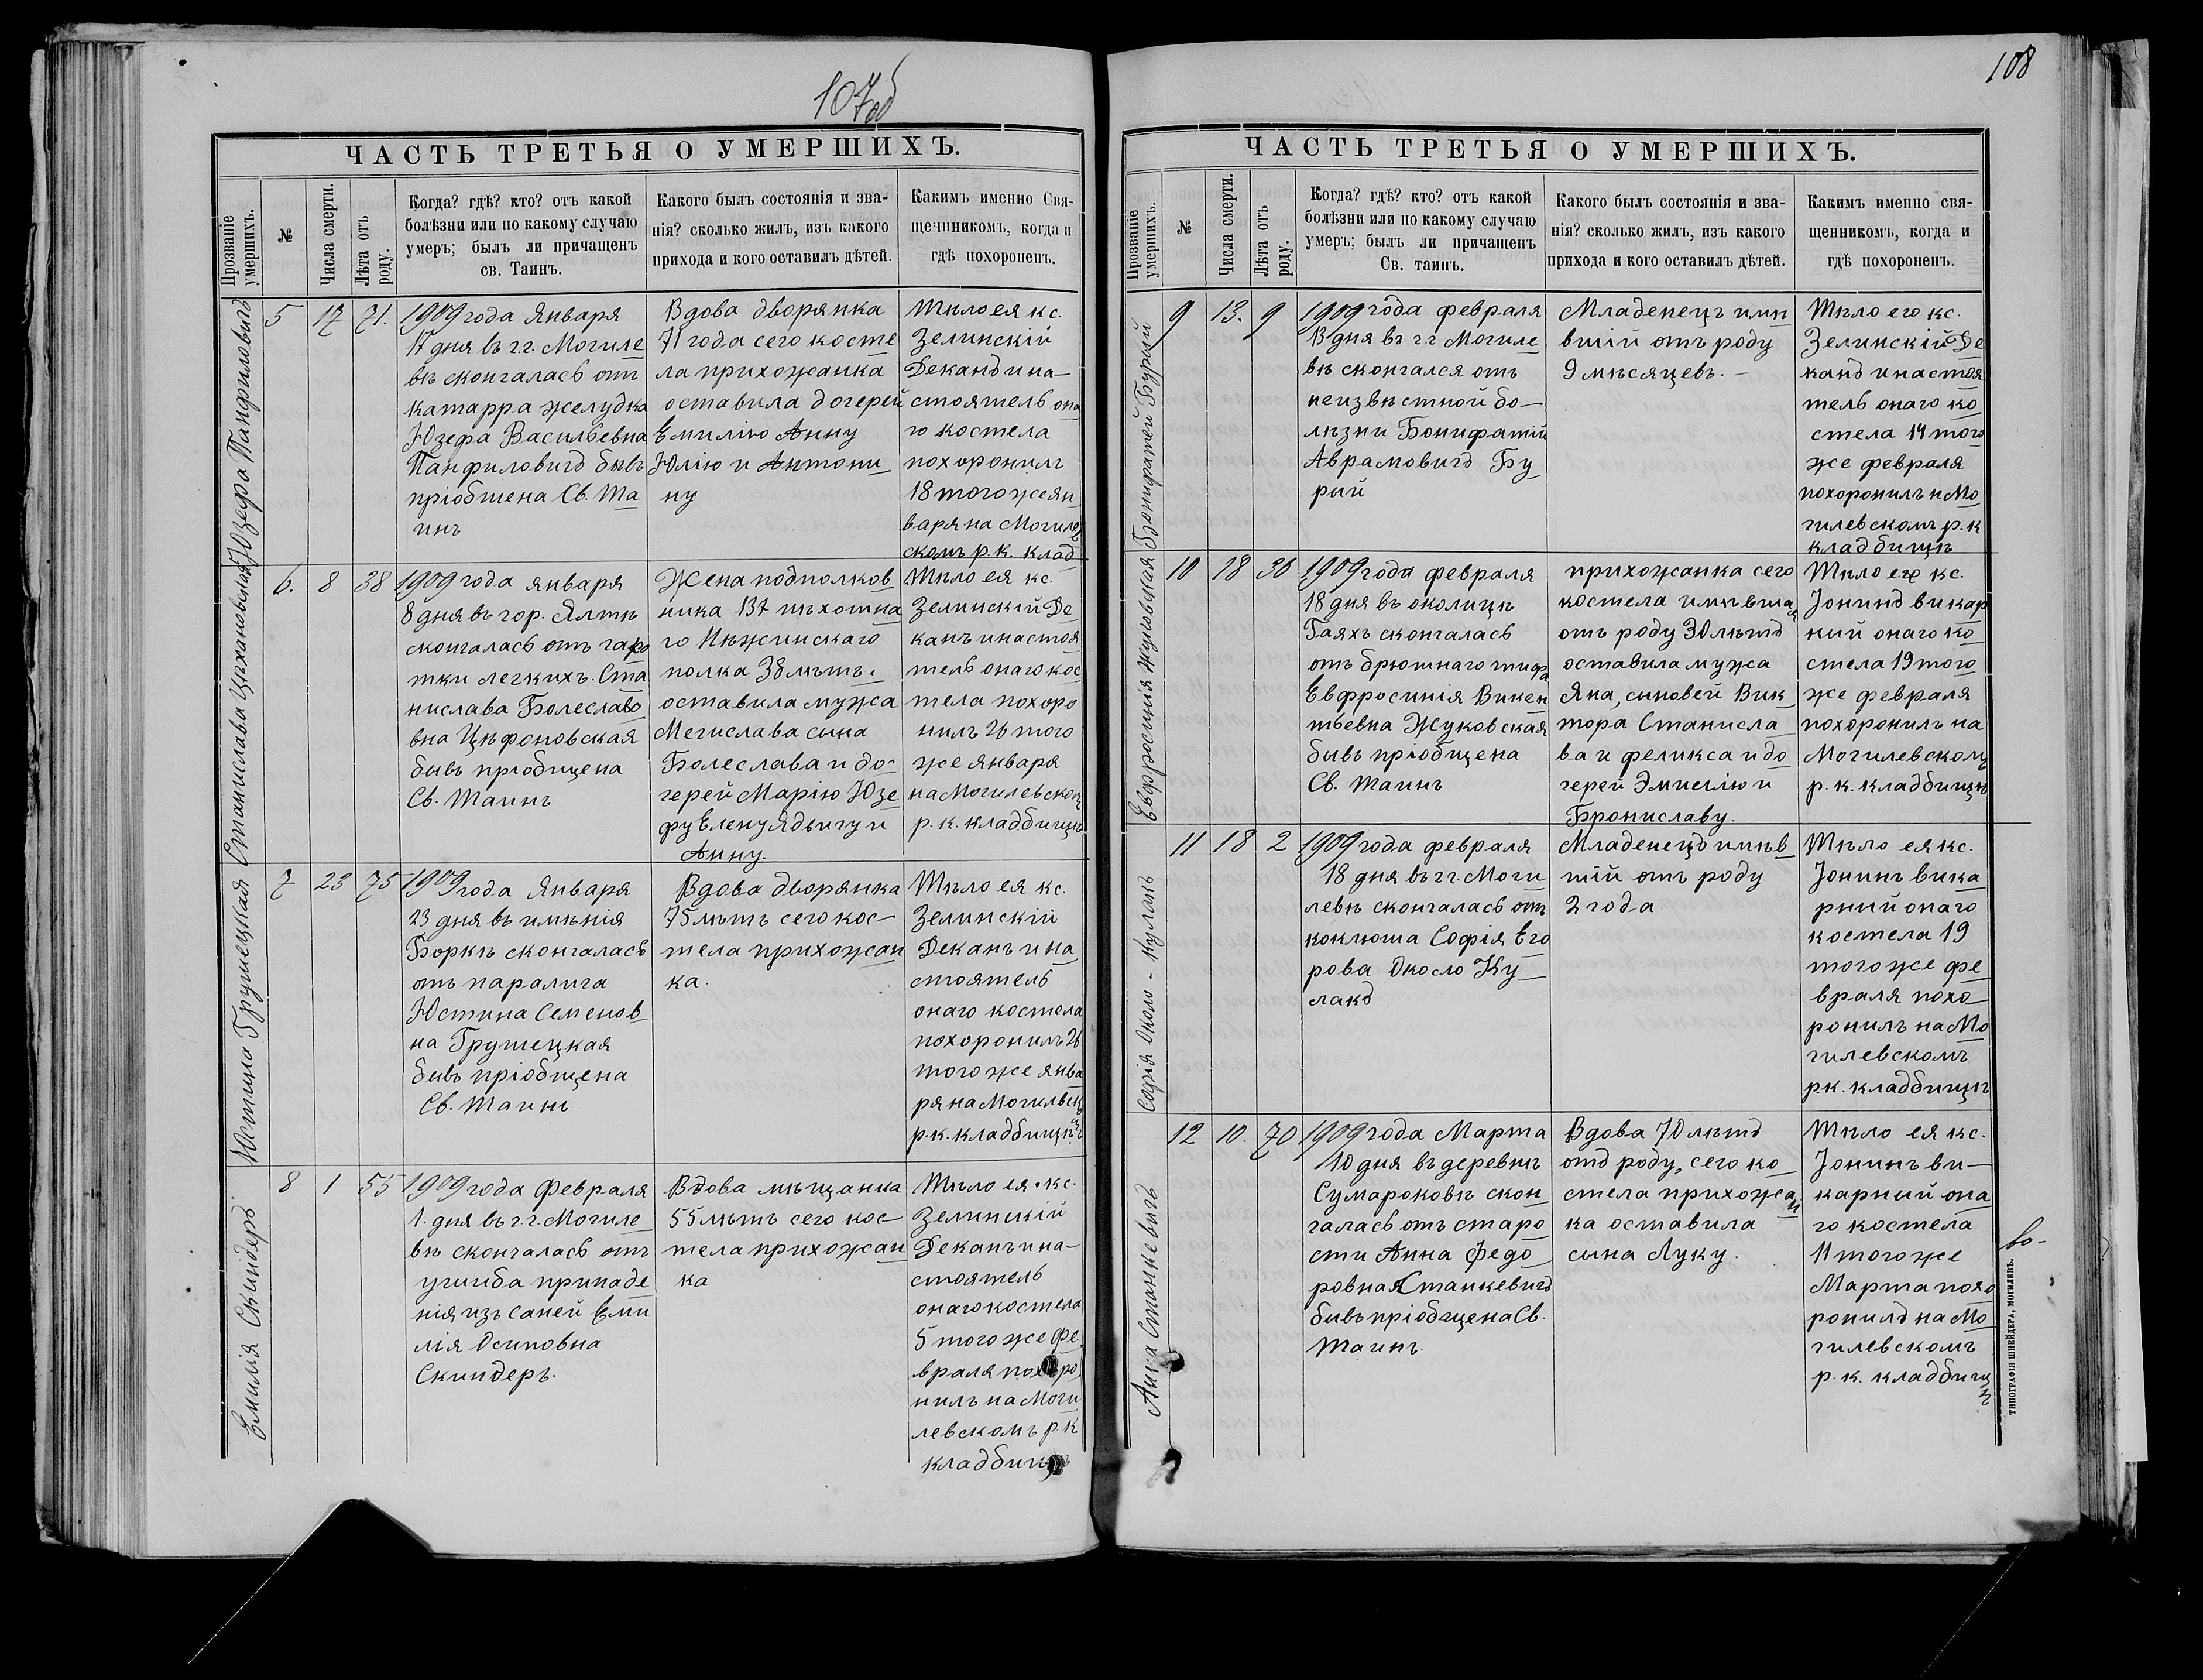 107об
ЧАСТЬ ТРЕТЬЯ О УМЕРШИХЪ.
Прозваніе
умершихъ.
№
Числа смерти.
Лѣта отъ
роду.
Когда? гдѣ? кто? отъ какой
болѣзни или по какому случаю
умеръ; былъ ли причащенъ
св. Таинъ.
Какого былъ состоянія и зва-
нія? сколько жилъ, изъ какого
прихода и кого оставилъ дѣтей.
Какимъ именно Свя-
щенникомъ, когда и
гдѣ похороненъ.
Юзефа Панфиловичъ
5
17
71.
1909 года Января
17 дня въ г.г. Могиле
вѣ скончалась отъ
катарра желудка
Юзефа Васильевна
Панфиловичъ бывъ
пріобщена Св. Та
инъ
Вдова дворянка
71 года сего косте
ла прихожанка
оставила дочерей
Емилію Анну
Юлію и Антони
ну
Тѣло ея кс.
Зелинскій
Деканъ и на-
стоятель она
го костела
похоронилъ
18 того же ян
варя на Могилев
скомъ р.к. клад
Станислава Цѣхановская
6.
8
38
1909 года января
8 дня въ гор. Ялтѣ
скончалась отъ чахо
тки легкихъ. Ста
нислава Болеславо
вна Цѣфоновская
бывъ пріобщена
Св. Таинъ
Жена подполков
ника 137 пѣхотна
го Нѣжинскаго
полка 38 лѣтъ.
оставила мужа
Мечислава сына
Болеслава и до-
черей Марію Юзе
фу Елену Ядвигу и
Анну.
Тѣло ея кс.
Зелинскій Де
канъ и настоя
тель онаго кос
тела похоро
нилъ 26 того
же января
на Могилевском
р.к. кладбищѣ
Юстина Грушецкая
7
23
75
1909 года Января
23 дня въ имѣнія
Боркѣ скончалась
отъ паралича
Юстина Семенов
на Грушецкая
бывъ пріобщена
Св. Таинъ
Вдова дворянка
75 лѣтъ сего кос-
тела прихожан
ка.
Тѣло ея кс.
Зелинскій
Деканъ и на
стоятель
онаго костела
похоронилъ 26
того же янва
ря на Могилвск
р.к. кладбищѣ
Емилія Скиндеръ.
8
1
55
1909 года Февраля
1. дня въ г.г. Могиле
вѣ скончалась отъ
ушиба припаде
нія изъ саней Еми
лія Осиповна
Скиндеръ.
Вдова мѣщанка
55 лѣтъ сего кос-
тела прихожан
ка
Тѣло ея кс.
Зелинскій
Деканъ и на-
стоятель
онаго костела
5 того же фе
враля похоро
нилъ на Моги
левскомъ р.к.
кладбищѣ
108
ЧАСТЬ ТРЕТЬЯ О УМЕРШИХЪ.
Прозваніе
умершихъ.
№
Числа смерти.
Лѣта отъ
роду.
Когда? гдѣ? кто? отъ какой
болѣзни или по какому случаю
умеръ; былъ ли причащенъ
Св. таинъ.
Какого былъ состоянія и зва-
нія? сколько жилъ, изъ какого
прихода и кого оставилъ дѣтей.
Какимъ именно свя-
щенникомъ, когда и
гдѣ похороненъ.
Бонифатей Бурый
9
13.
9
1909 года февраля
13 дня въ г.г Могиле
вѣ скончался отъ
неизвѣстной бо-
лѣзни Бонифатій
Аврамовичъ Бу
рый
Младенецъ имѣ
вшій отъ роду
9 мѣсяцевъ. -
Тѣло его кс.
Зелинскій Де
канъ и настоя
тель онаго ко
стела 14 того
же февраля
похоронилъ н Мо
гилевскомъ р.к
кладбищѣ
Евфросинія Жуковская
10
18
30
1909 года февраля
18 дня въ околицѣ
Гаяхъ скончалась
отъ брюшнаго тифа
Евфросинія Викен
тьевна Жуковская
бывъ пріобщена
Св. Таинъ
прихожанка сего
костела имѣвшая
отъ роду 30 лѣтъ
оставила мужа
Яна, сыновей Вик
тора Станисла
ва и феликса и до
черей Эмилію и
Брониславу.
Тѣло ея кс.
Іонинъ викар
ный онаго ко
стела 19 того
же февраля
похоронилъ на
Могилевскомъ
р.к. кладбищѣ
Софія Около-Кулакъ
11
18
2
1909 года февраля
18 дня въ г.г. Моги
левѣ скончалась отъ
коклюша Софія Его
рова Около Ку
лакъ
Младенецъ имѣв
шій отъ роду
2 года
Тѣло ея кс.
Іонинъ вика
рный онаго
костела 19
того же фе
враля похо
ронилъ на Мо
гилевскомъ
р.к. кладбищѣ
Анна Станкевичъ
12
10.
70
1909 года Марта
10 дня въ деревнѣ
Сумароковѣ скон
чалась отъ старо
сти Анна Федо
ровна Станкевичъ
бывъ пріобщена Св.
Таинъ.
Вдова 70 лѣтъ
отъ роду, сего ко
стела прихожан
ка оставила
сына Луку.
Тѣло ея кс.
Іонинъ ви-
карный она
го костела
11 того же
Марта похо
ронилъ на Мо
гилевскомъ
р.к. кладбищѣ
во-
ТИПОГРАФІЯ ШНЕЙДЕРА, МОГИЛЕВЪ.